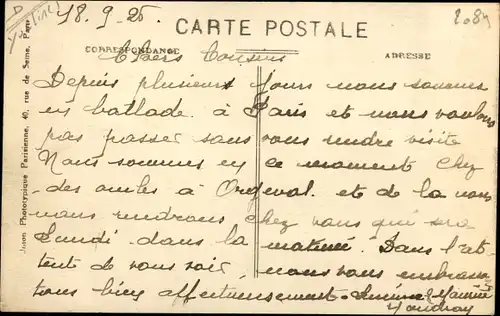 18.9.25.
CARTE POSTALE
CORRESPONDANCE
ADRESSE
Chers Cousins
Depuis plusieurs jours nous sommes
en ballade à Paris et nous voulons
pas passer sans vous rendre visite
Nous sommes en ce moment chez
des amies à Orgeval. et de la nous
nous rendrons chez vous qui sera
Lundi dans la matinée. Dans l'at-
tente de vous voir, nous vous embrassons
tous bien affectueusement.
Union Phototypique Parisienne, 40, rue de Seine, Paris